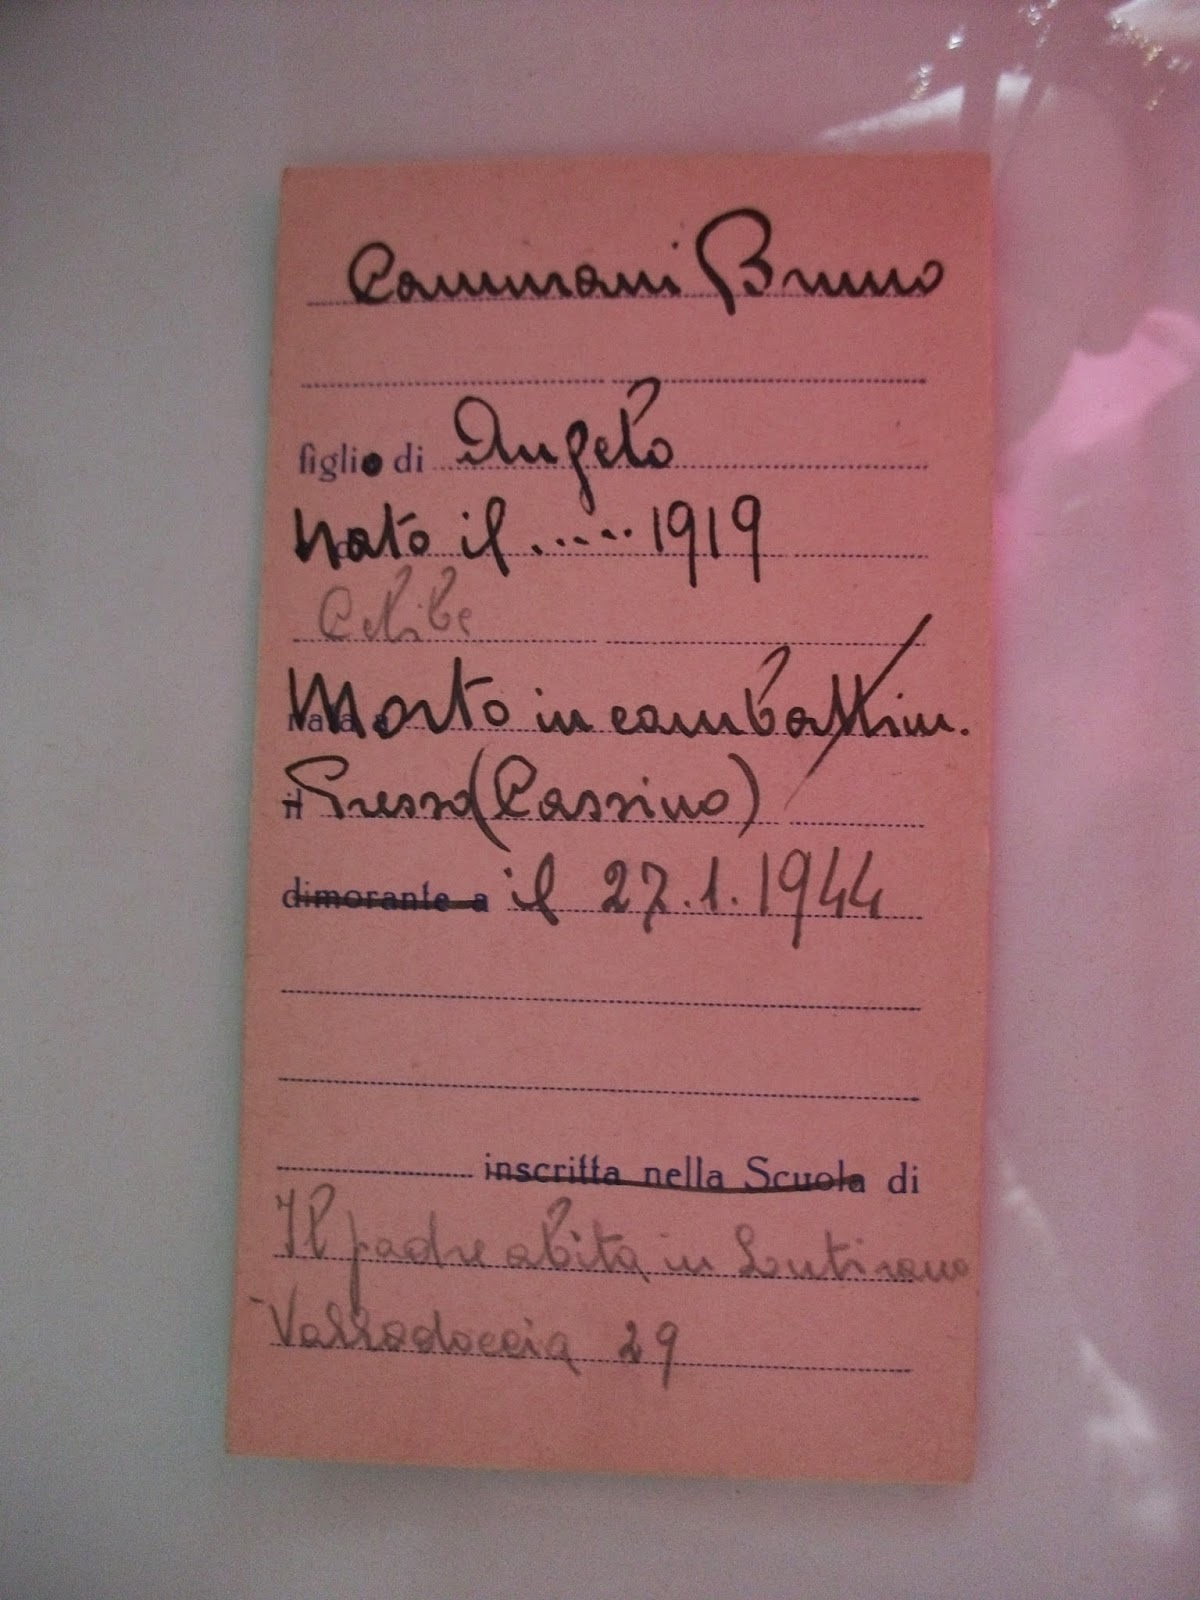 Cammani Bruno
figlio di Angelo
Nato il ..... 1919
Celibe
Morto in combattim.
il Presso (Cassino)
dimorante a il 27.1.1944
inscritta nella Scuola di
Il padre abita in Lutirano
Valladoccia 29